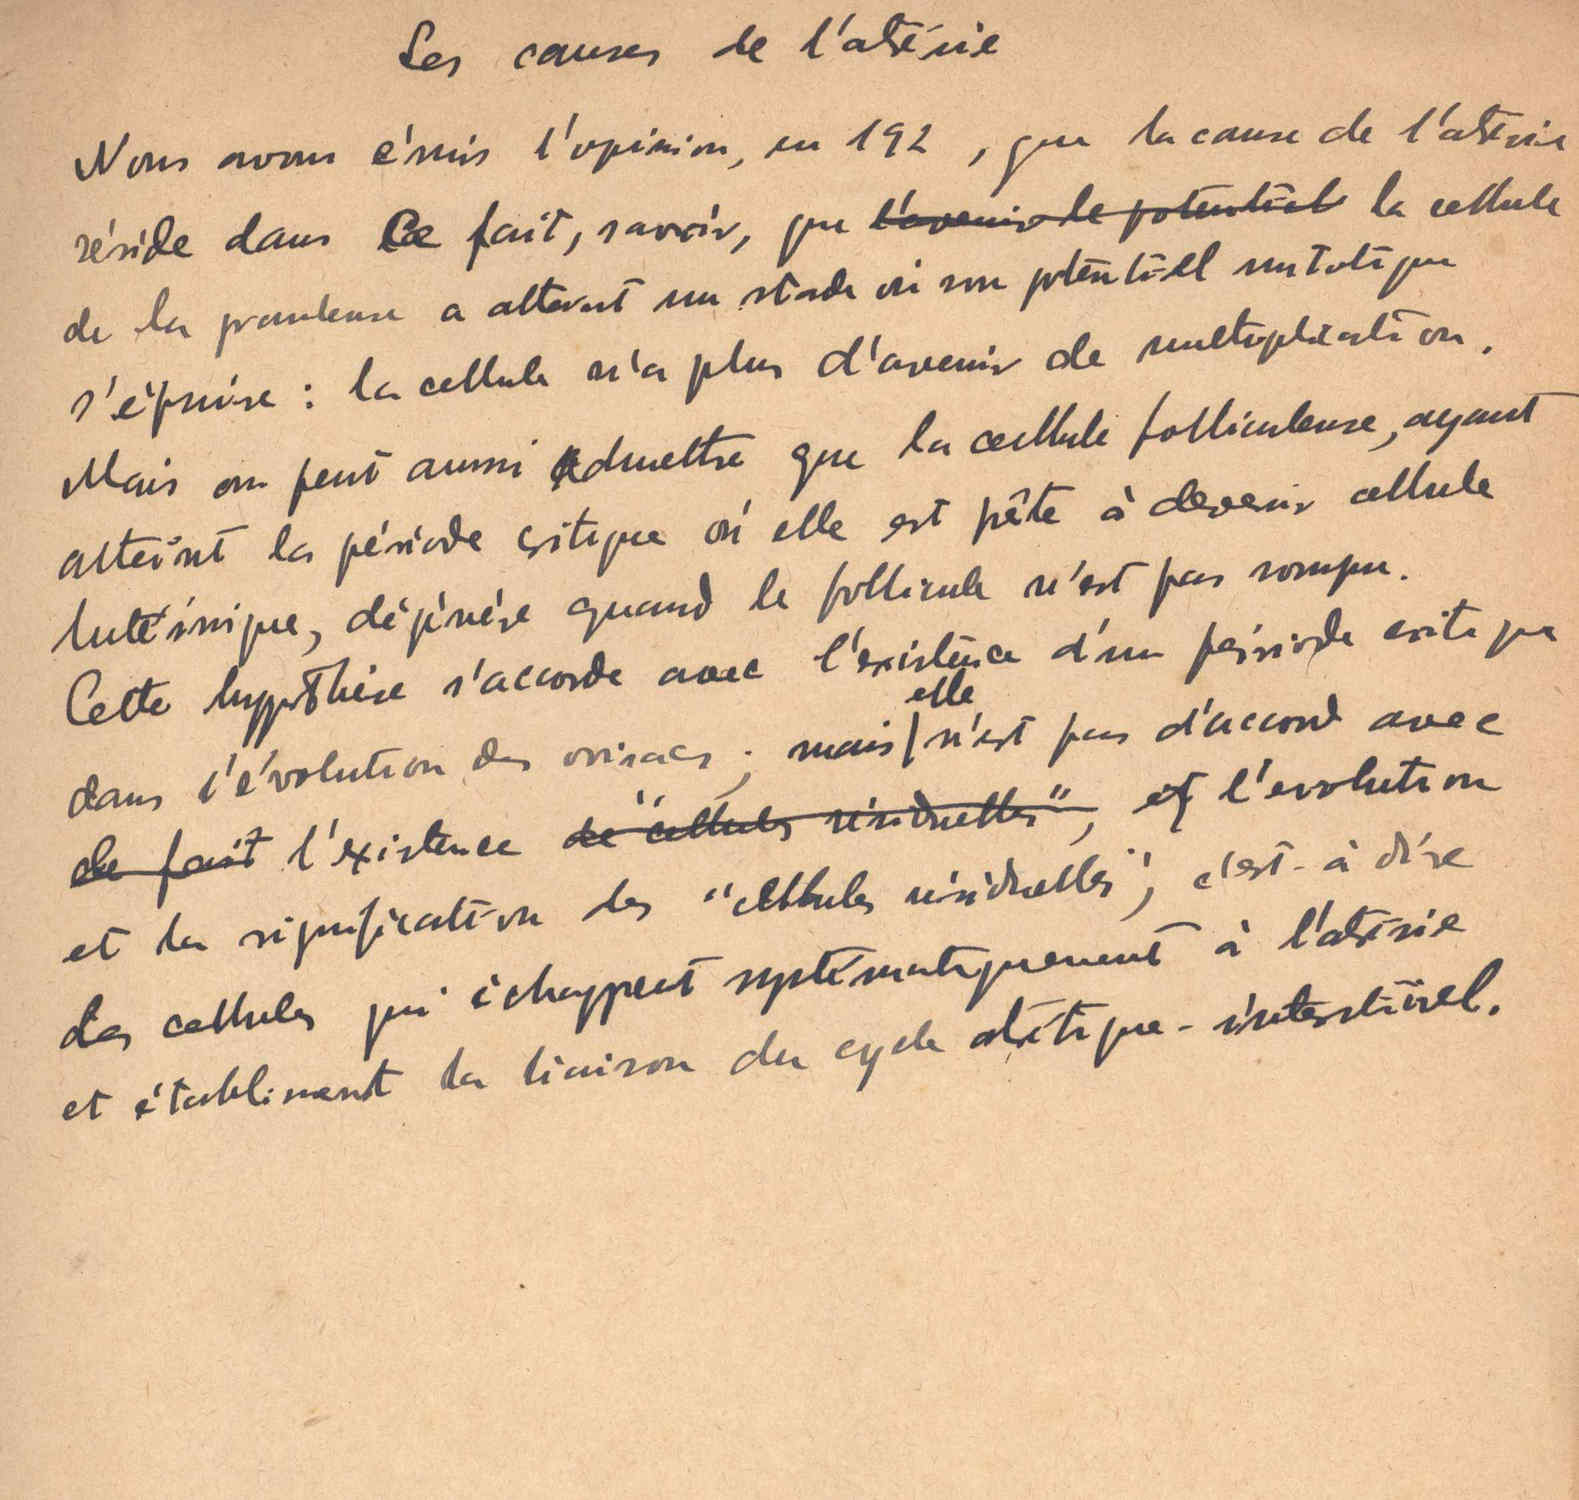 Les causes de l'atrésie
Nous avons émis l'opinion, en 192 , que la cause de l'atrésie
réside dans ce fait, savoir, que l'avenir de potentiel la cellule
de la granuleuse a atteint un stade où son potentiel mitotique
s'épuise : la cellule n'a plus d'avenir de multiplication.
Mais on peut aussi admettre que la cellule folliculeuse, ayant
atteint la période critique où elle est prête à devenir cellule
lutéinique, dégénère quand le follicule n'est pas rompu.
Cette hypothèse s'accorde avec l'existence d'un période critique
dans l'évolution des ovisacs ; mais elle n'est pas d'accord avec
de fait l'existence de "cellules résiduelles", et l'evolution
et la signification des "cellules résiduelles", c'est-à dire
des cellules qui échappent systématiquement à l'atrésie
et établissent la liaison du cycle atrétique-interstitiel.